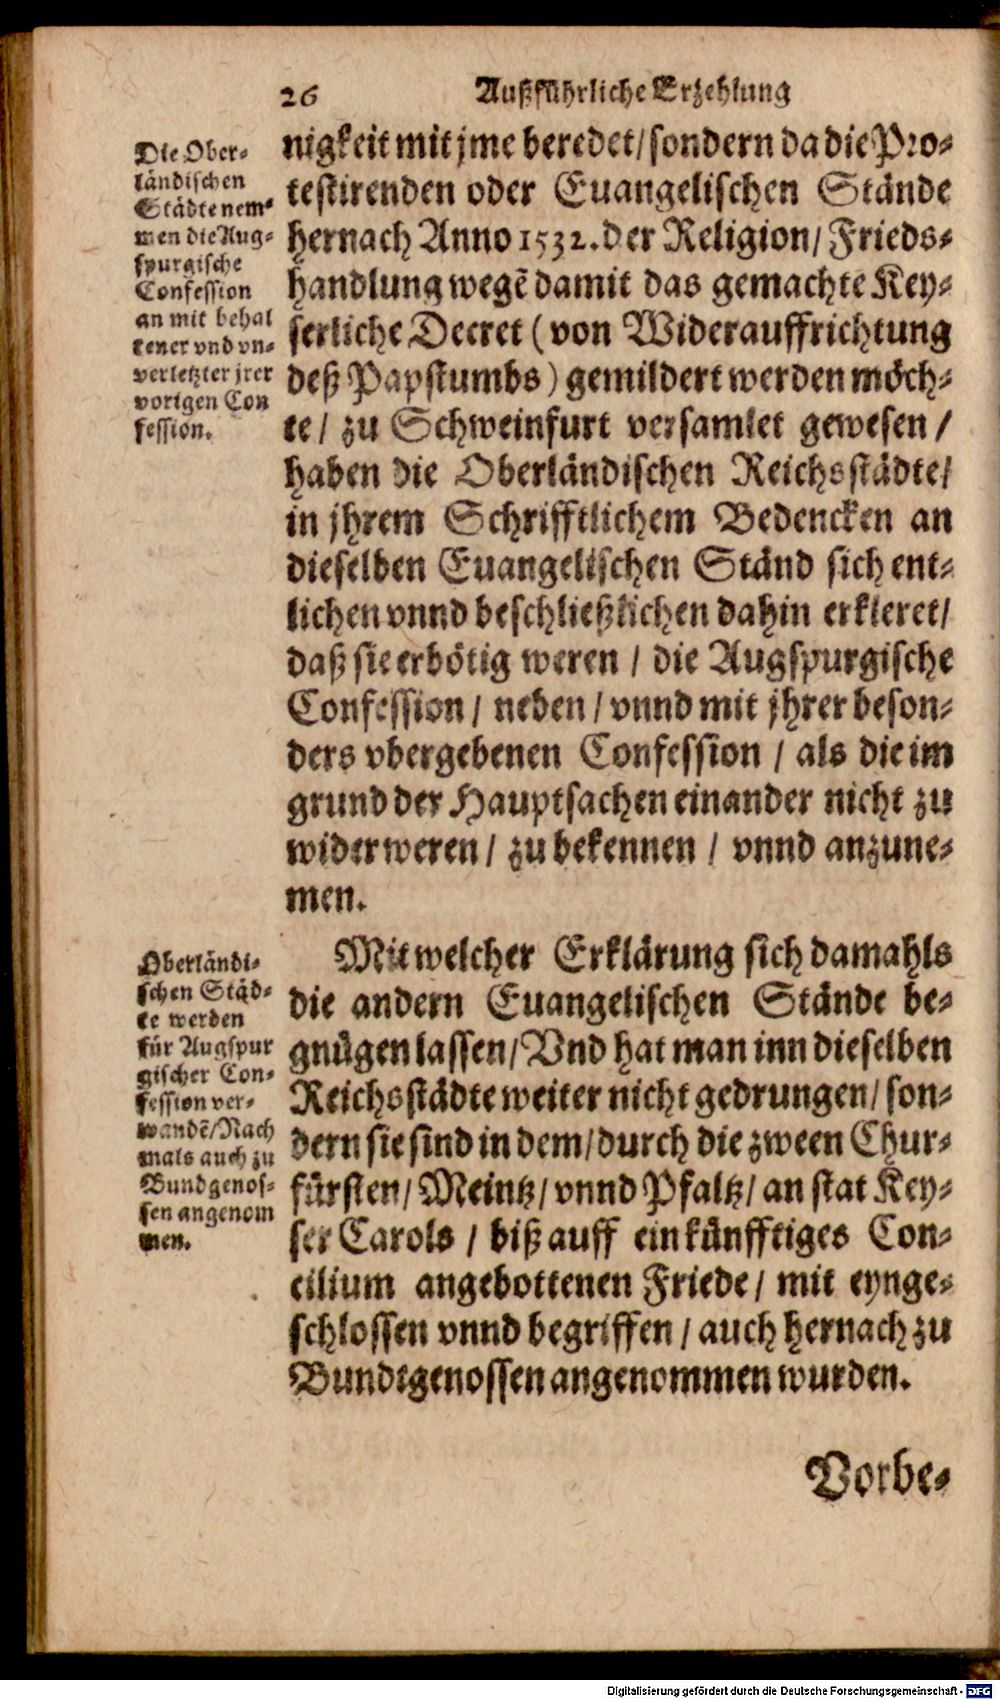 26 Außführliche Erzehlung
Die Ober-
ländischen
Städte nem-
men die Aug-
spurgische
Confession
an mit behal
tener vnd vn-
verletzter jrer
vorigen Con
fession.
nigkeit mit jme beredet/ sondern da die Pro-
testirenden oder Euangelischen Stände
hernach Anno 1532. der Religion/ Frieds-
handlung wegẽ damit das gemachte Key-
serliche Decret (von Widerauffrichtung
deß Papstumbs) gemildert werden möch-
te/ zu Schweinfurt versamlet gewesen/
haben die Oberländischen Reichsstädte/
in jhrem Schrifftlichem Bedencken an
dieselben Euangelischen Ständ sich ent-
lichen vnnd beschließlichen dahin erkleret/
daß sie erbötig weren/ die Augspurgische
Confession/ neben/ vnnd mit jhrer beson-
ders vbergebenen Confession/ als die im
grund der Hauptsachen einander nicht zu
wider weren/ zu bekennen/ vnnd anzune-
men.
Oberländi-
schen Städ-
te werden
für Augspur
gischer Con-
fession ver-
wandẽ/ Nach
mals auch zu
Bundgenos-
sen angenom
men.
Mit welcher Erklärung sich damahls
die andern Euangelischen Stände be-
gnügen lassen/ Vnd hat man inn dieselben
Reichsstädte weiter nicht gedrungen/ son-
dern sie sind in dem/ durch die zween Chur-
fürsten/ Meintz/ vnnd Pfaltz/ an stat Key-
ser Carols/ biß auff ein künfftiges Con-
cilium angebottenen Friede/ mit eynge-
schlossen vnnd begriffen/ auch hernach zu
Bundtgenossen angenommen wurden.
Vorbe-
Digitalisierung gefördert durch die Deutsche Forschungsgemeinschaft - DFG